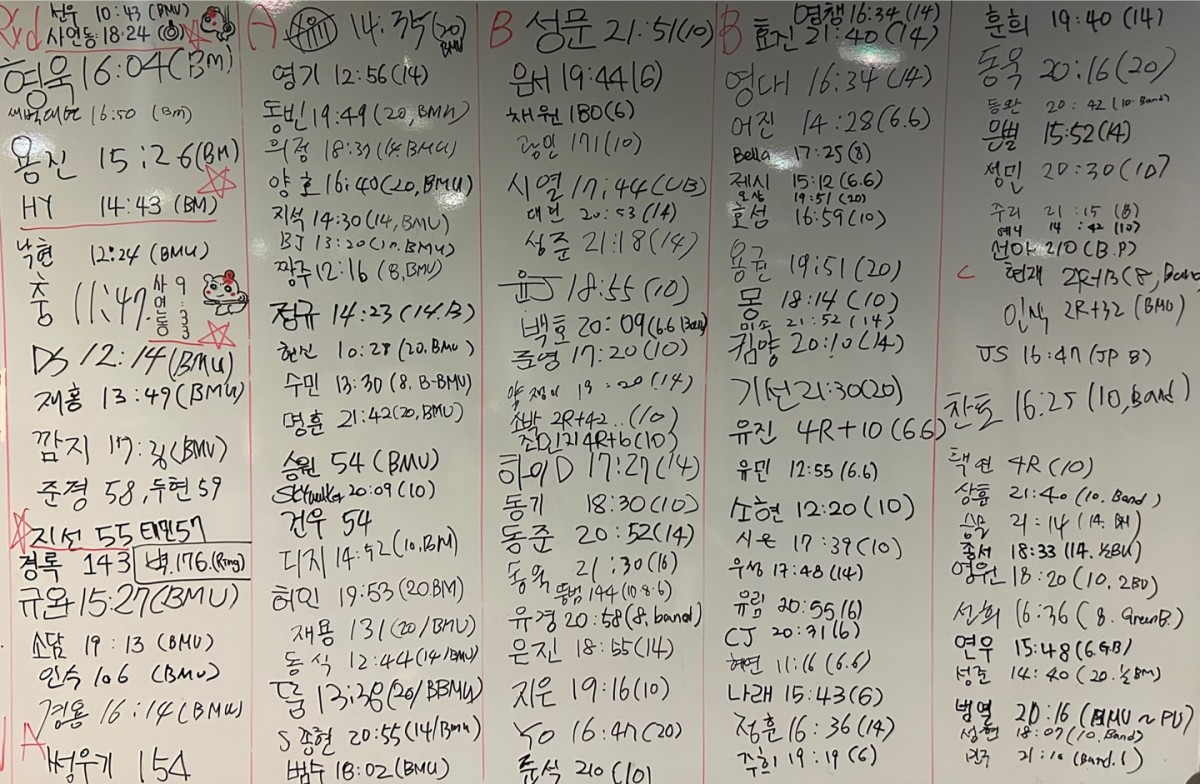 Rxd
선우 10:43 (BMU)
사연동: 18:24
형욱 16:04 (BM)
16:50 (Bm)
용진 15:26 (BM)
HY 14:43 (BM)
낙현 12:24 (BMU)
충 11:47.
사연동 9:33
DS 12:14 (BMU)
재홍 13:49 (BMU)
깜지 17: (BMU)
준정 58, 두현 59
지선 55 태민 57
경록 143
벽.176.(Ring)
규완 15:27 (BMU)
소담 19:13 (BMU)
인수 106 (BMU)
경용 16:14 (BMU)
A
성우기 154
A
14:35 (20) BMU
영기 12:56 (14)
동빈 19:49 (20, BMU)
의정 18:37 (14.BMU)
양호 16:40 (20, BMU)
지석 14:30 (14, BMU)
BJ 13:20 (10. BMU)
짱주 12:16 (8, BMU)
정규 14:23 (14.B)
현신 10:28 (20. BMU)
수민 13:30 (8. B-BMU)
명훈 21:42 (20, BMU)
승원 54 (BMU)
Skywalker 20:09 (10)
건우 54
디지 14:52 (10, BM)
허인 19:53 (20.BM)
재용 131 (20/BMU)
동식 12:44 (14/BMU)
둘 13:38 (20/BBMU)
S 종현 20:55 (14/Bmu)
범수 18:02 (BMU)
B
성문 21:51 (10)
윤서 19:44 (6)
채원 180 (6)
광민 171 (10)
시열 17:44 (UB)
대현 20:53 (14)
성준 21:18 (14)
윤J 18:55 (10)
백호 20:09 (6.6 Band)
준영 17:20 (10)
19:20 (14)
소박 2R+42.. (10)
조민지 4R+6 (10)
하의D 17:27 (14)
동기 18:30 (10)
동준 20:52 (14)
동욱 21:30 (16)
똘범 144 (10.8.6)
유경 20:58 (8, band)
은진 18:55 (14)
지은 19:16 (10)
YO 16:47 (20)
윤석 210 (10)
B
영챙 16:34 (14)
효진 21:40 (14)
영대 16:34 (14)
어진 14:28 (6.6)
Bella 17:25 (8)
제시 15:12 (6.6)
오상 19:51 (20)
효성 16:59 (10)
용권 19:51 (20)
몽 18:14 (10)
미소 21:52 (14)
킴양 20:10 (14)
기선 21:30 (20)
유진 4R+10 (6.6)
유민 12:55 (6.6)
소현 12:20 (10)
시온 17:39 (10)
우성 17:48 (14)
유림 20:55 (6)
CJ 20:31 (6)
혜연 11:16 (6.6)
나래 15:43 (6)
정훈 16:36 (14)
주희 19:19 (6)
훈희 19:40 (14)
동욱 20:16 (20)
동완 20:42 (10.Band)
은별 15:52 (14)
성민 20:30 (10)
주리 21:15 (8)
예니 14:42 (10)
선아 210 (B.P)
C
현재 2R+13 (8, Band)
인식 2R+32 (BMU)
JS 16:47 (JP B)
찬토 16:25 (10, Band)
택연 4R (10)
상훈 21:40 (10. Band)
승물 21:14 (14. BM)
종서 18:33 (14. ½BU)
영원 18:20 (10. 2BU)
선희 16:36 (8. GreenB.)
연우 15:48 (6.GB)
성준 14:40 (20. ½BM)
범열 20:16 (BMU ~ PU)
성현 18:07 (10. Band)
민주 21:10 (Band.1)